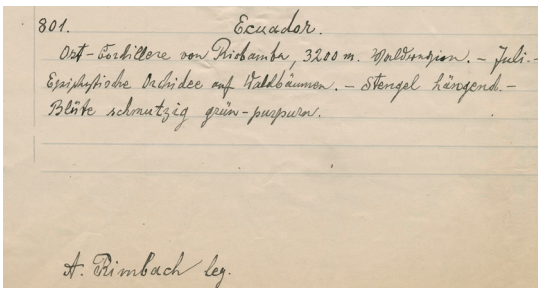 801. Ecuador.
Ost-Cordillere von Riobamba, 3200 m. Waldregion. – Juli. –
Epiphytische Orchidee auf Waldbäumen. – Stengel hängend. –
Blüte schmutzig grün-purpurn.
A. Rimbach leg.